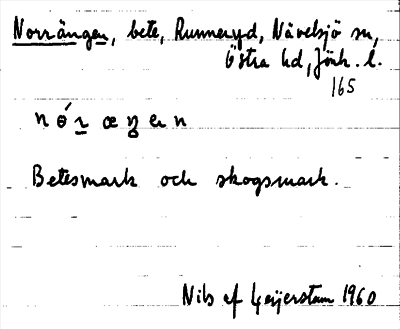 Norrängen, bete, Runneryd, Nävelsjö sn,
Östra hd, Jönk. l.
165
n ɵ́ r æ ŋ en n
Betesmark och skogsmark.
Nils af Geijerstam 1960